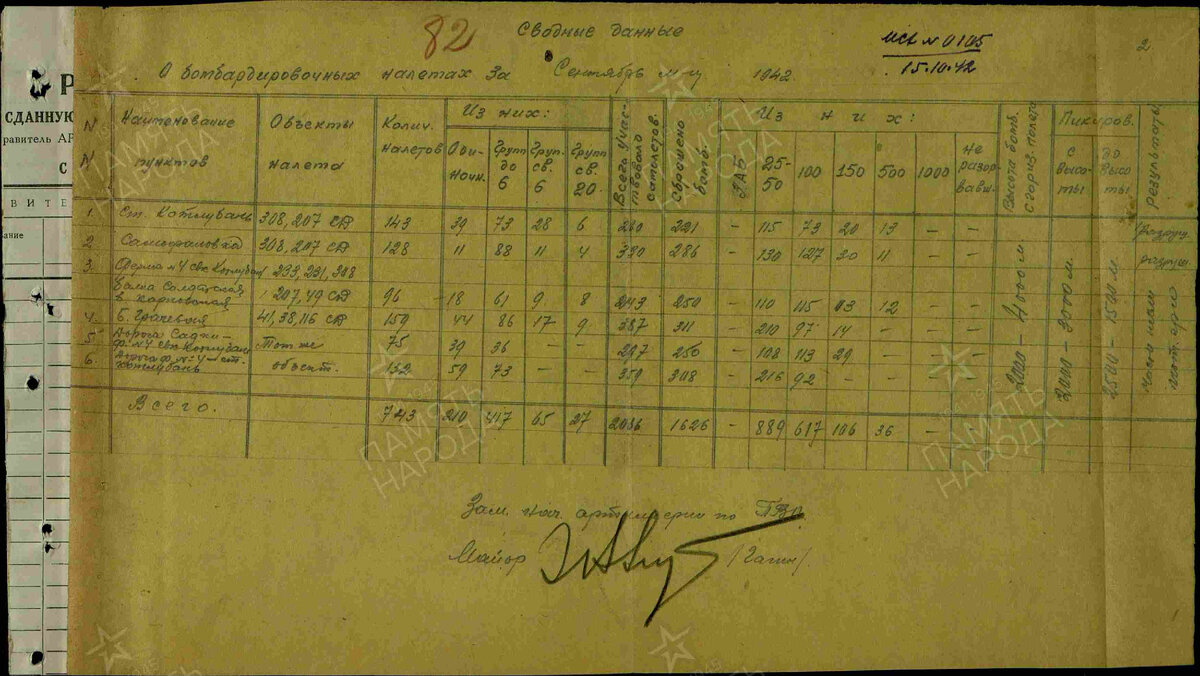 82
Сводные данные
исх № 0105
15.10.42
2
О бомбардировочных налетах за Сентябрь м-ц 1942.
N N Наименование пунктов Объекты налета Колич. налетов Из них: Всего участвовало самолетов. Сброшено бомб. Из них: Высота бомб. с гориз. полета Пикиров. результаты
Один. Групп до 6 Груп. св. 6 Групп св. 20. ФАБ 25-50 100 150 500 1000 не разорвавш. с высоты до высоты
1. Ст. Котлубань 308, 207 СД 143 39 73 28 6 280 231 - 115 73 20 13 - -
2. Самофаловка 308. 207 СД 128 11 88 11 4 380 286 - 130 127 20 11 - -
3. Ферма №4 свх Котлубан 233, 231, 308
Балка Солдатская 207, 49 СД 96 18 61 9 8 243 250 - 110 115 13 12 - -
4. Б. Грачевая 41, 38, 116 СД 159 44 86 17 9 387 311 - 210 97 14 - - -
5. Дорога Садки - ф. №4 свх Котлубань Те же 75 39 36 - - 297 250 - 108 113 29 - - -
6. Дорога ф. №4 - ст. Котлубань объект. 132 59 73 - - 359 308 - 216 92 - - - -
2000 - 4000 м
2000 - 3000 м.
2500 - 1500 м.
Всего. 743 210 417 65 27 2036 1626 - 889 617 106 36 - -
Зам. нач. артиллерии по ПВО
Майор
СДАННУЮ
ПАМЯТЬ НАРОДА
1941-1945